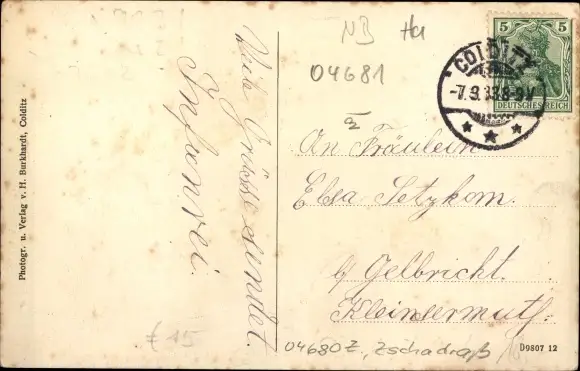 Photogr. u. Verlag v. H. Burkhardt, Colditz
Viele Grüsse sendet
NB Ha
04681
5 5
DEUTSCHES REICH
COLDITZ
-7.9.13.8-9V
An Fräulein
Elsa Setzkorn.
b/ Gelbricht.
Kleinsermuth.
€ 15
04680Z, Zschadraß
D9807 12